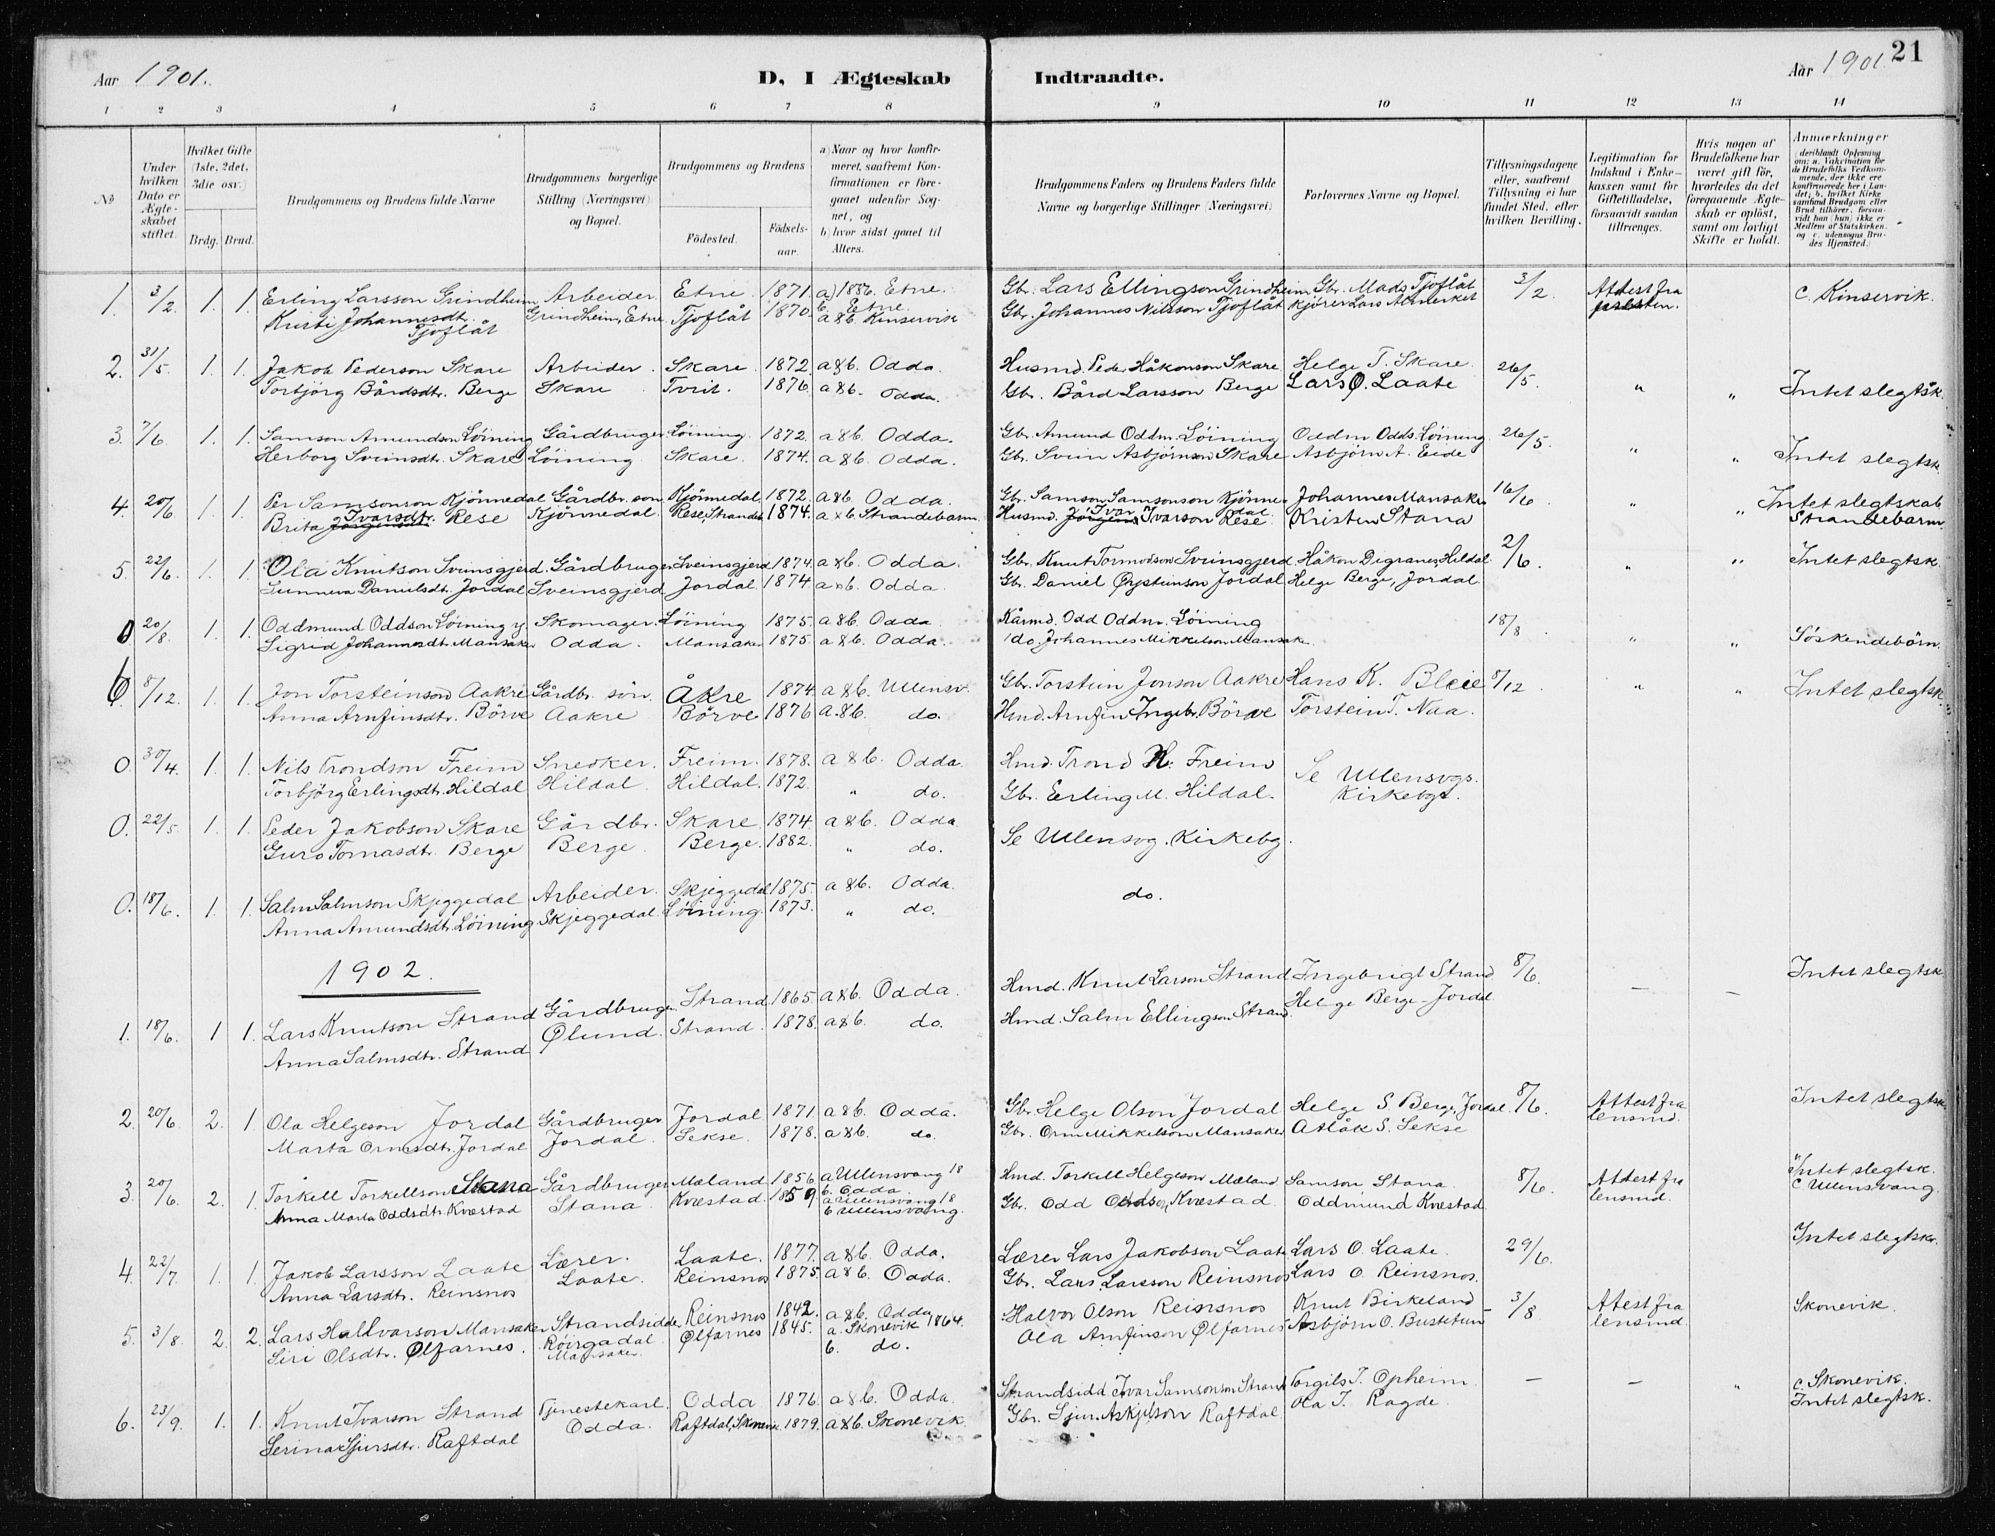 Aar 1901.
D, I Ægteskab Indtraadte.
Aar 1901
21
1 2 3 4 5 6 7 8 9 10 11 12 13 14
No
Under hvilken Dato er Ægteskabet stiftet.
Hvilket Gifte (1ste, 2det, 3die osv.)
Brdg. Brud.
Brudgommens og Brudens fulde Navne
Brudgommens borgerlige Stilling (Næringsvei) og Bopæl.
Brudgommens og Brudens
Födested.
Födsels-aar.
a) Naar og hvor konfirmeret, saafremt Konfirmationen er foregaaet udenfor Sognet, og
b) hvor sidst gaaet til Alters.
Brudgommens Faders og Brudens Faders fulde Navne og borgerlige Stillinger (Næringsvei)
Forlovernes Navne og Bopæl.
Tillysningsdagene eller, saafremt Tillysning ei har fundet Sted, efter hvilken Bevilling.
Legitimation for Indskud i Enkekassen samt for Giftetilladelse, forsaavidt saadan tiltrænges.
Hvis nogen af Brudefolkene har været gift før, hvorledes da det foregaaende Ægteskab er oplöst, samt om lovligt Skifte er holdt.
Anmærkninger
1. 3/2 1. 1. Erling Larsson Grindheim Arbeider Etne 1871. a) 1886. Etne. Gbr. Lars Ellingson Grindheim Gbr. Mads Tjoflåt 3/2. Attest fra c. Kinservik.
Kristi Johannesdt. Tjoflåt Grindheim, Etne Tjoflåt 1870. b. Etne. a & b. Kinservik Gbr. Johannes Nilsson Tjoflåt Kjörer Lars
2. 31/5. 1. 1. Jakob Pederson Skare Arbeider. Skare. 1872. a & b. Odda. Husmd. Peder Håkonson Skare Helge T. Skare. 26/5 " " Intet slegtsk.
Torbjörg Bårdsdtr. Berge Skare Tveit. 1876. a & b. Odda. Gbr. Bård Larsson Berge Lars O. Laate
3. 7/6. 1. 1. Samson Amundson Löining Gårdbruger Löining. 1872. a & b. Odda. Gbr. Amund Oddm. Löining Oddm Odds. Löining 26/5. " " Intet slegtsk.
Herborg Sveinsdt. Skare Löining. Skare. 1874. a & b. Odda. Gbr. Svein Asbjörnson Skare Asbjörn A. Eide
4. 20/6 1. 1. Per Samsonson Kjönnedal Gårdbr. son Kjönnedal. 1872. a & b. Odda. Gbr. Samson Samsonson Kjönnedal Johannes Mansaker 16/6 " " Intet slegtskab
Brita Ivarsdt. Rese Kjönnedal Rese, Strandeb. 1874. a & b. Strandebarm Husmd. Ivar Ivarson Rese Kristen Stana Strandebarm.
5. 22/6. 1. 1. Ola Knutson Sveinsgjerd. Gårdbruger Sveinsgjerd 1874. a & b. Odda. Gbr. Knut Tormodson Sveinsgjerd Håkon Digranes, Hildal 2/6. " " Intet slegtsk
Gunneva Danielsdt. Jordal Sveinsgjerd Jordal. 1874 a & b. Odda. Gbr. Daniel Øysteinson Jordal Helge Berge, Jordal
0 20/8. 1. 1. Oddmund Oddson Löining y. Skomager. Löining 1875. a & b. Odda Kårmd. Odd Oddm. Löining 18/8 " " Söskendebörn.
Sigrid Johannesdt. Mansaker Odda. Mansaker 1875. a & b. Odda. do. Johannes Mikkelson Mansaker
6. 8/12. 1. 1. Jon Torsteinson Aakre Gårdbr. sön Åkre 1874. a & b. Ullensv. Gbr. Torstein Jonson Aakre Hans K. Bleie 8/12. " " Intet slegtsk.
Anna Arnfinsdtr. Börve Aakre Börve 1876 a. & b. do. Hmd. Arnfin Ingebr. Börve Torstein T. Naa.
0. 30/4. 1. 1. Nils Trondson Freim Snedker. Freim. 1878. a & b. Odda. Hmd. Trond H. Freim Se Ullensvgs.
Torbjörg Erlingsdt. Hildal Hildal. Hildal. 1872. " do. Gbr. Erling M. Hildal. Kirkebgs.
0. 22/5 1. 1. Peder Jakobson Skare Gårdbr. Skare. 1874. a & b. Odda. Se Ullensvg. Kirkebg.
Guro Tomasdtr. Berge Berge. Berge. 1882. " do.
0. 18/6. 1. 1. Salm Salmson Skjeggedal Arbeider. Skjeggedal 1875. a & b. Odda. do.
Anna Amundsdt. Löining Skjeggedal. Löining. 1873. " do.
1902.
1. 18/6. 1 1. Lars Knutson Strand Gårdbruger. Strand 1865. a & b. Odda. Hmd. Knut Larson Strand Ingebrigt Strand 8/6. – – Intet slegtsk.
Anna Salmsdtr. Strand Ølund. Strand. 1878. a & b. do. Hmd. Salm Ellingson Strand. Helge Berge Jordal
2. 20/6. 2. 1. Ola Helgeson Jordal Gårdbruger Jordal 1871. a & b. Odda. Gbr. Helge Olson Jordal Helge S. Berge, Jordal 8/6. Attest fra lensmd. Intet slegtsk
Marta Ormsdtr. Jordal Jordal. Sekse. 1878. a & b. do. Gbr. Orm Mikkelson Mansaker Aslåk S. Sekse
3. 20/6 2. 1. Torkell Torkellson Stana Gårdbruger Mæland 1856 a Ullensvang 18 b. Odda. Hmd. Torkell Helgeson Mæland Samson Stana. 8/6. Attest fra lensmd. Intet slegtsk. c. Ullensvang.
Anna Marta Oddsdtr. Kvæstad Stana. Kvæstad. 1859 a Ullensvang 18 b Ullensvang. Gbr. Odd Oddson Kvæstad. Oddmund Kvæstad.
4. 22/7. 1. 1. Jakob Larsson Laate Lærer. Laate. 1877. a & b. Odda. Lærer Lars Jakobson Laate Lars O. Laate. 29/6. Intet slegtsk.
Anna Larsdtr. Reinsnos Laate. Reinsnos 1875. a & b. Odda. Gbr. Lars Larsson Reinsnos Lars O. Reinsnos.
5. 3/8. 2. 2. Lars Hallvarson Mansaker Strandsidder Reinsnos 1842. a & b. Odda Halvor Olson Reinsnos Knut Birkeland – 3/8 Attest fra lensmd. Skonevik.
Siri Olsdtr. Ølfarnes. Mansaker Ølfarnes 1845. a. Skonevik 1864. b. do. Ola Arnfinson Ølfarnes Asbjörn O. Bustetun
6. 23/9. 1. 1. Knut Ivarson Strand Tjenestekarl. Odda 1876. a & b. Odda. Strandsidd Ivar Samsonson Strand Torgils T. Opheim – – " c. Skonevik.
Serina Sjursdtr. Raftdal Odda. Raftdal, Skonevik 1879. a & b. Skonevik. Gbr. Sjur Askjelson Raftdal Ola T. Ragde. Intet slegtsk.